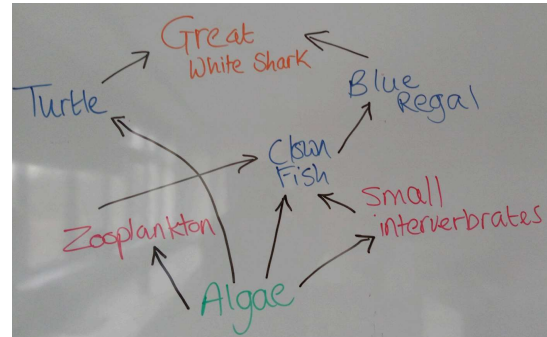 Great
White Shark
Turtle
Blue
Regal
Clown
Fish
Small
interverbrates
Zooplankton
Algae